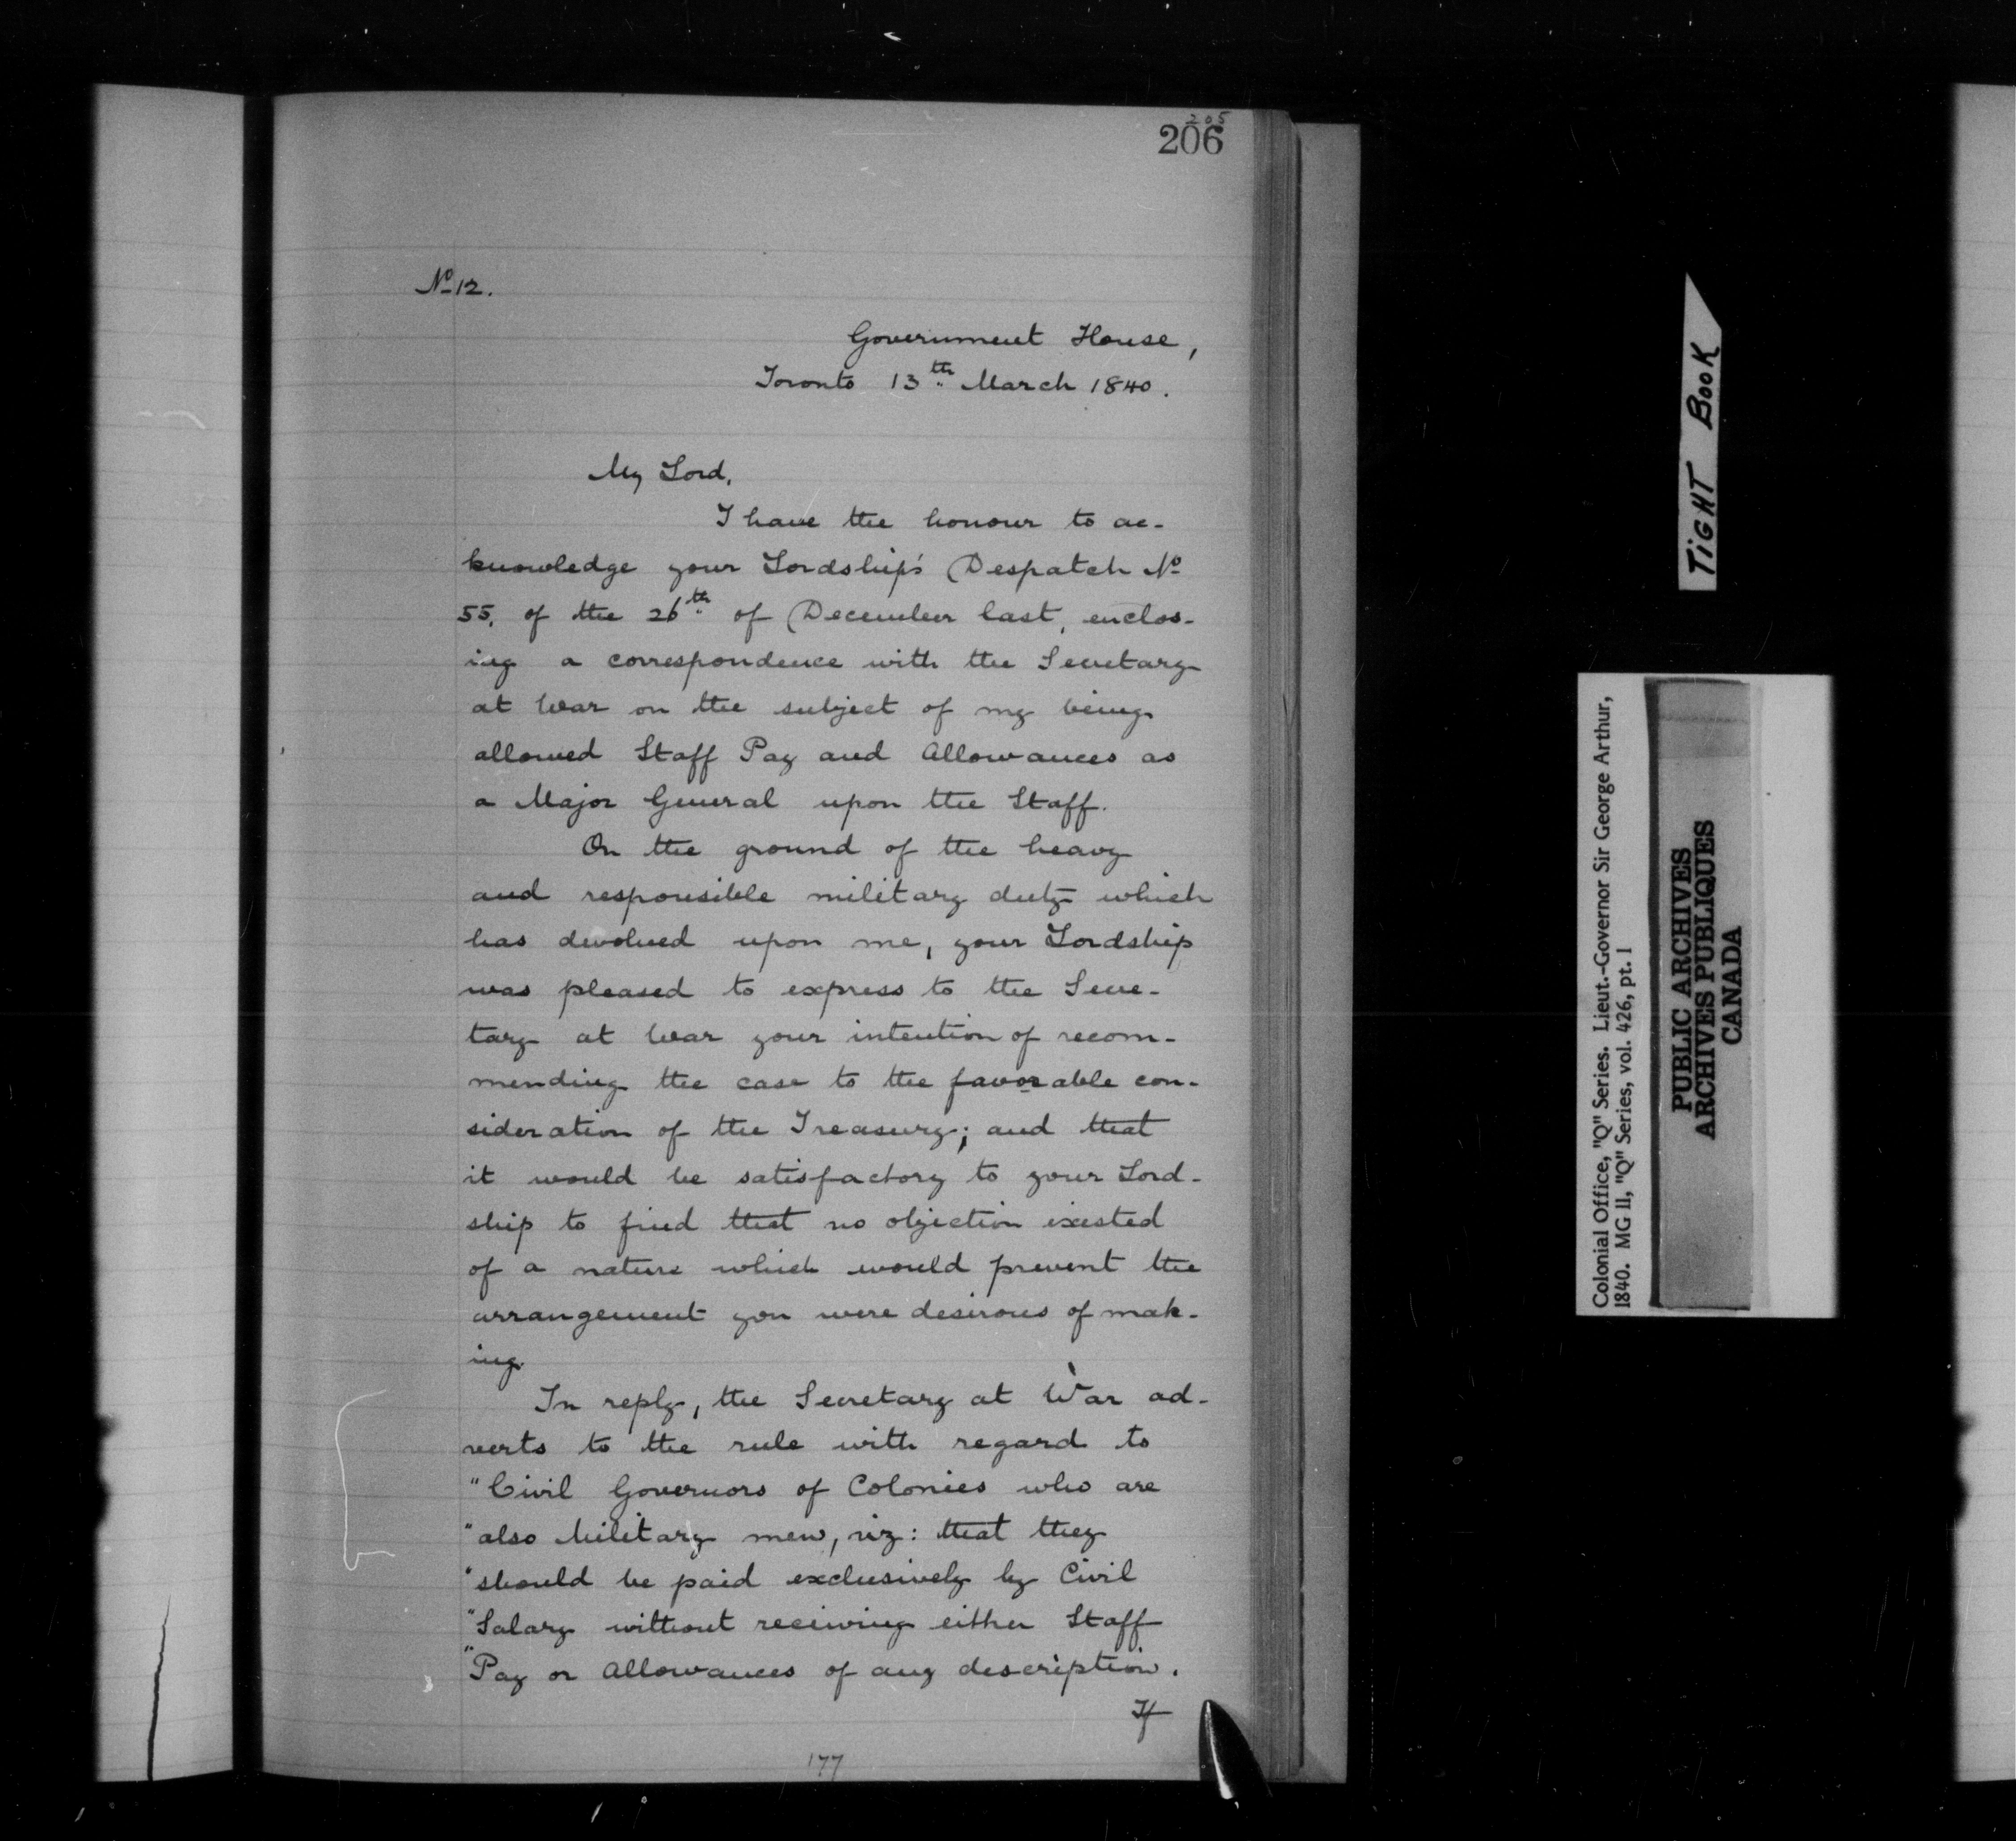 205
206
No 12.
Government House,
Toronto 13th March 1840.
My Lord,
I have the honour to ac-
knowledge your Lordship's Despatch No
55, of the 26th of December last, enclos-
ing a correspondence with the Secretary
at War on the subject of my being
allowed Staff Pay and Allowances as
a Major General upon the Staff.
On the ground of the heavy
and responsible military duty which
has devolved upon me, your Lordship
was pleased to express to the Secre-
tary at War your intention of recom-
mending the case to the favorable con-
sideration of the Treasury; and that
it would be satisfactory to your Lord-
ship to find that no objection existed
of a nature which would prevent the
arrangement you were desirous of mak-
ing.
In reply, the Secretary at War ad-
verts to the rule with regard to
"Civil Governors of Colonies who are
"also Military men, viz: that they
"should be paid exclusively by Civil
"Salary without receiving either Staff
"Pay or Allowances of any description.
If
177
TIGHT BOOK
Colonial Office, "Q" Series. Lieut.-Governor Sir George Arthur,
1840. MG 11, "Q" Series, vol. 426, pt. 1
PUBLIC ARCHIVES
ARCHIVES PUBLIQUES
CANADA